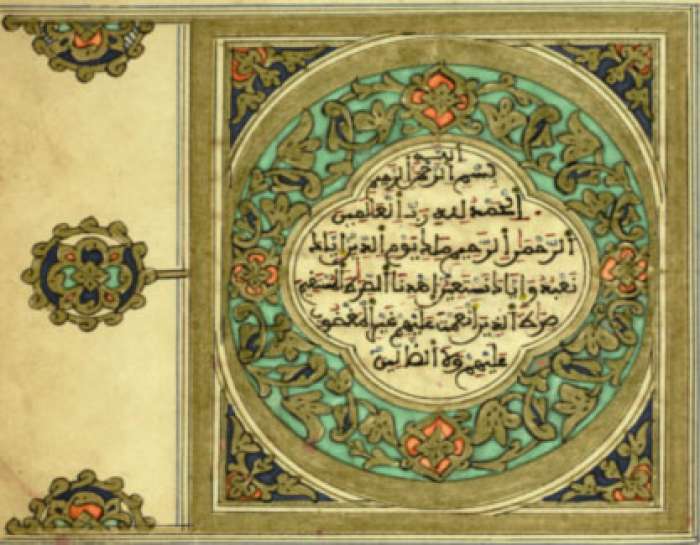 بسم الرحمن الرحيم
الحمد لله رب العلمين
الرحمن الرحيم ملك يوم الدين إياك
نعبد وإياك نستعين اهدنا الصرط المستقيم
صرط الذين أنعمت عليهم غير المغضوب
عليهم ولا الضالين